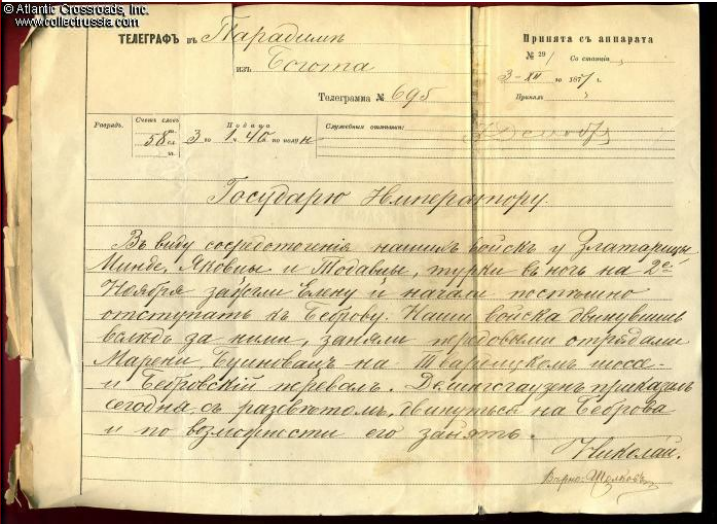 © Atlantic Crossroads, Inc.
www.collectrussia.com
ТЕЛЕГРАФЪ въ Парадимъ
изъ Богота
Телеграмма № 695
Принята съ аппарата
№ 291 Со станціи
3-XII го 1877 г.
Принялъ
Разрядъ. Счетъ словъ 58 П о д а н а 3 го 1. 46 по полун Служебныя отмѣтки:
Государю Императору.
Въ виду сосредоточенія нашихъ войскъ у Златарицы,
Минде, Яковцы и Тодавцы, турки въ ночь на 2ое
Ноября зажгли Елену и начали поспѣшно
отступать къ Беброву. Наши войска двинувшись
вслѣдъ за ними, заняли передовыми отрядами
Марени, Буиновацъ на Твардицкомъ шоссе
и Бебровскій перевалъ. Делингсгаузенъ приказалъ
сегодня, съ разсвѣтомъ, двинуться на Беброва
и по возможности его занять.
Николай.
Вѣрно: